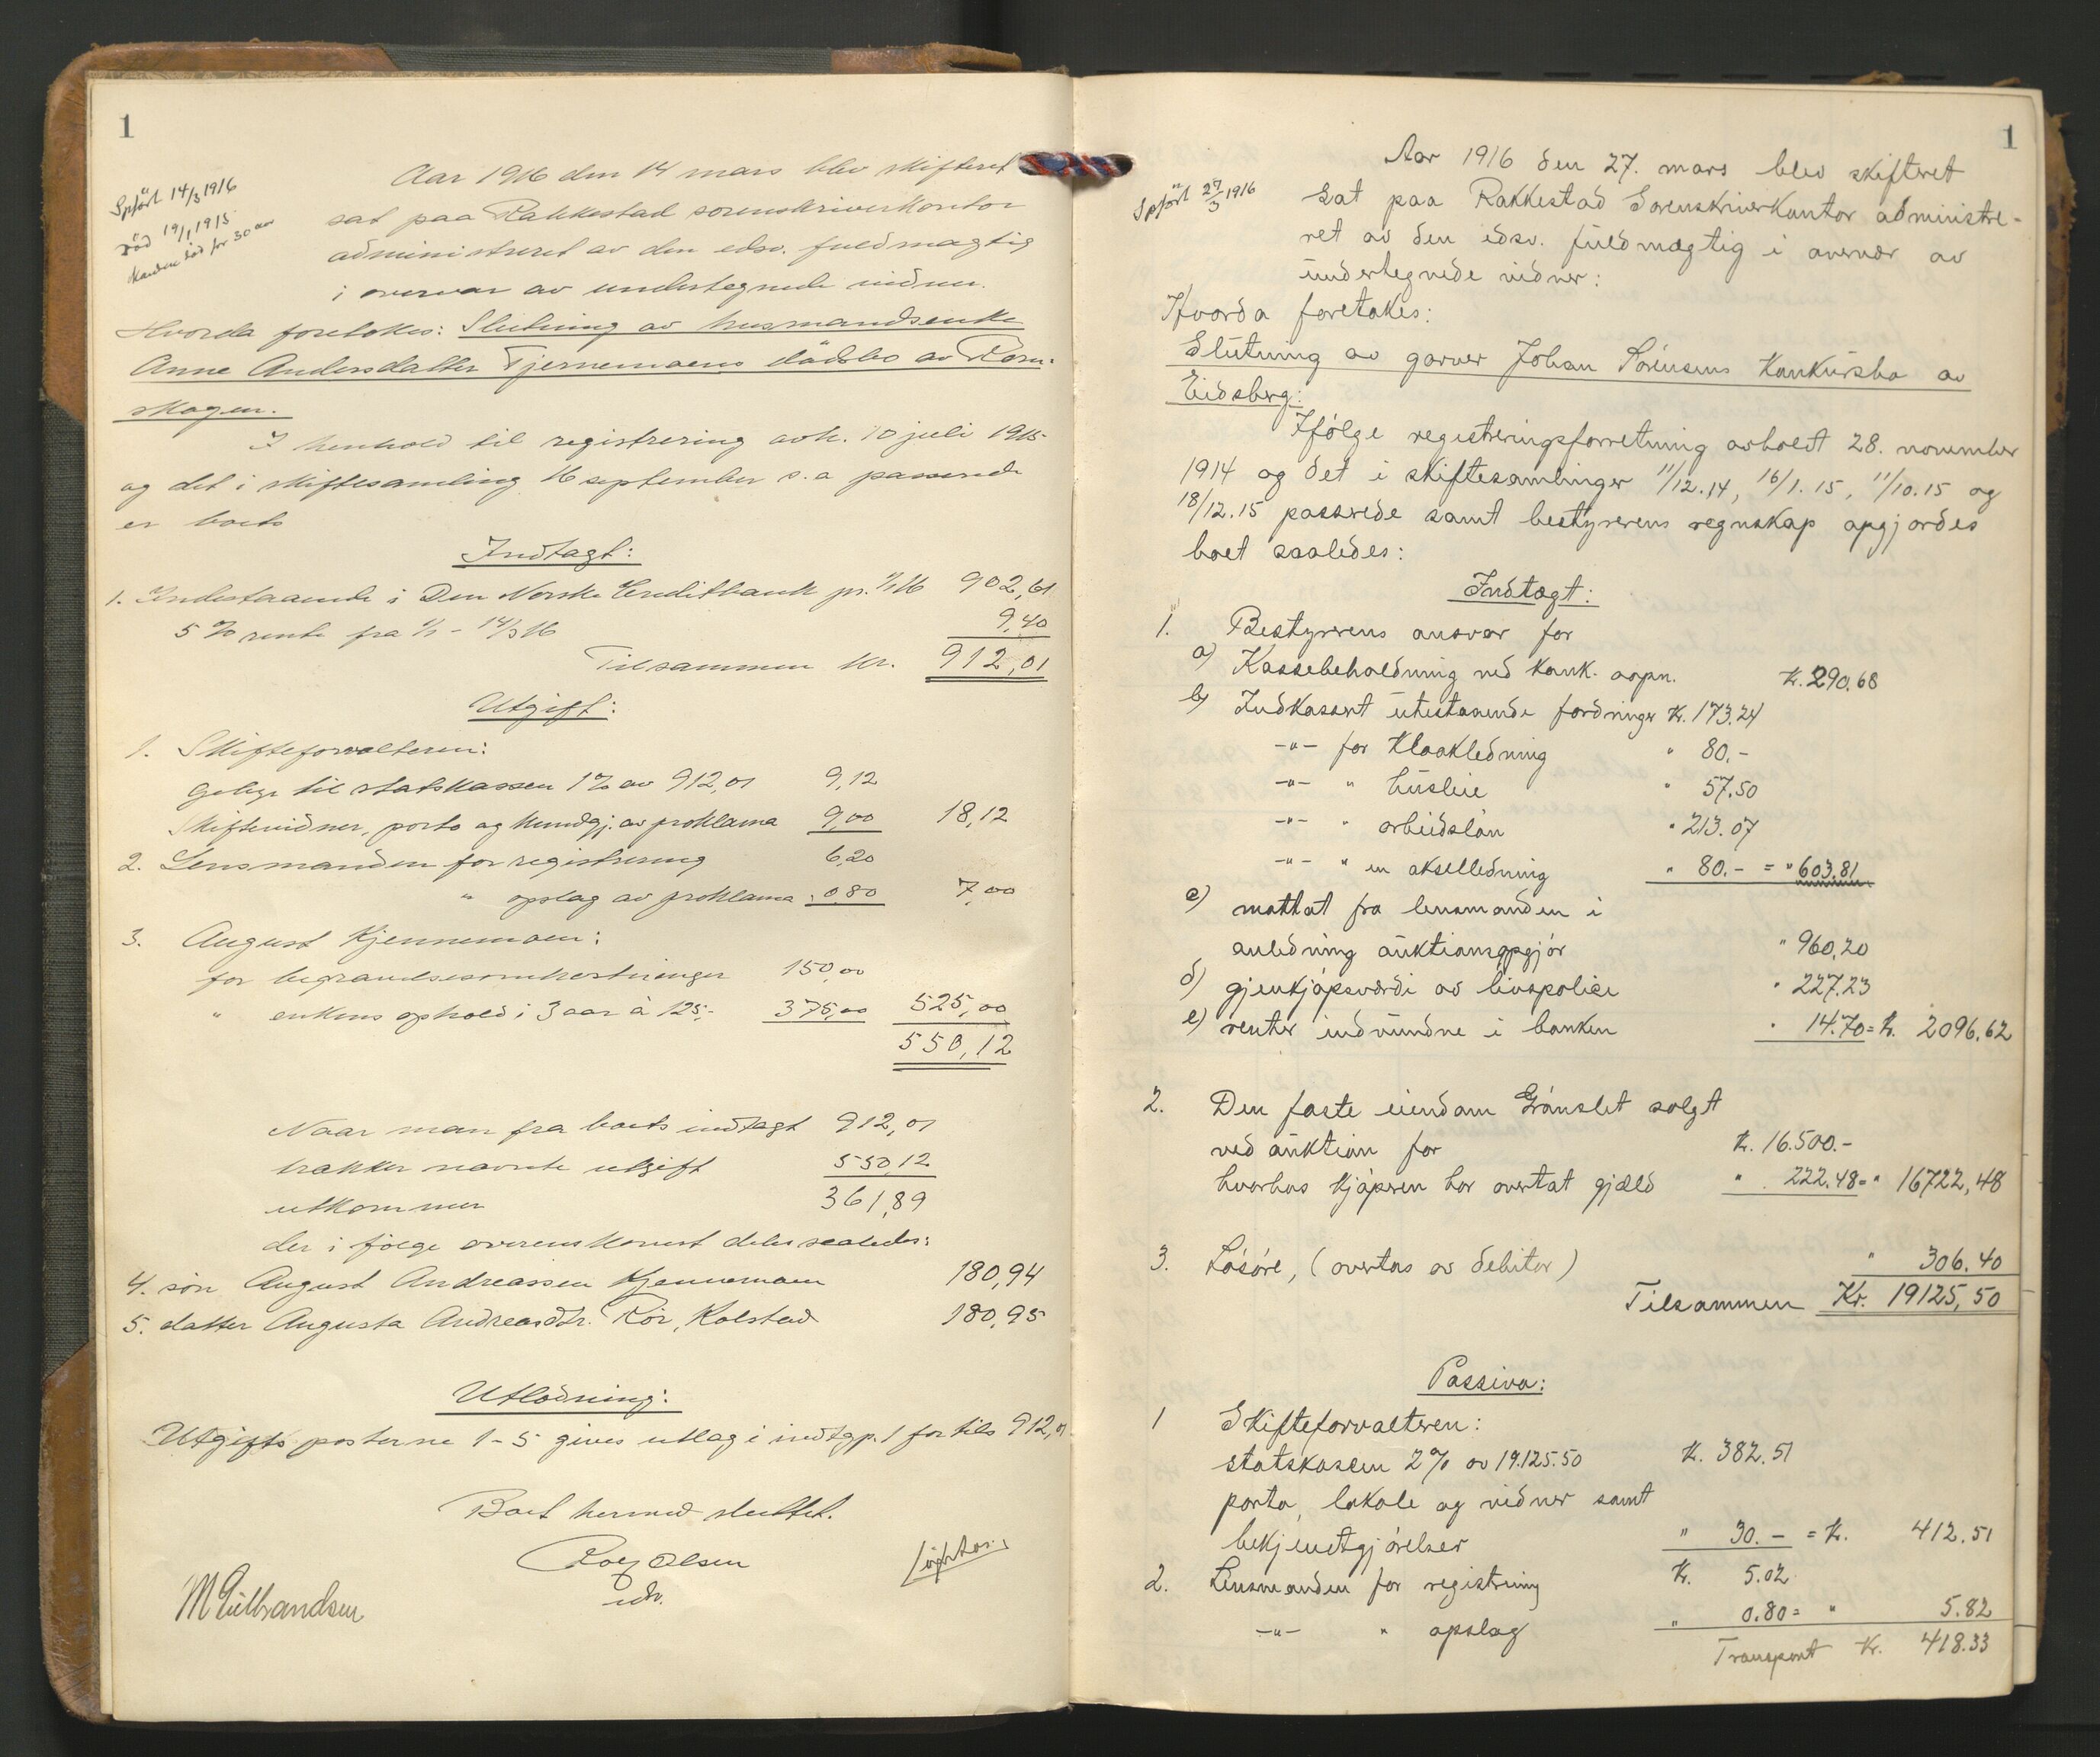 1
Spført 14/3 1916
Død 19/1 1915
Manden død for 30 aar
Aar 1916 den 14 mars blev skifteret
sat paa Rakkestad sorenskriverkontor
administreret av den edsv. fuldmægtig
i overvær av undertegnede vidner.
Hvorda foretokes: Slutning av husmandsenke
Anne Andersdatter Tjernemoens dødsbo av Røm-
skogen.
I henhold til registrering avh. 10 juli 1915
og det i skiftesamling 16 september s.a passerede
er boets
Indtægt:
1. Indestaaende i Den Norske Creditbank pr. 1/1 16 902,61
5 % rente fra 1/1 - 14/3 16 9,40
Tilsammen kr. 912,01
Utgift:
1. Skifteforvalteren:
gebyr til statskassen 1% av 912,01 9,12
Skiftevidner, porto og kundgj. av proklama 9,00 18,12
2. Lensmanden for registrering 6,20
" opslag av proklama 0,80 7,00
3. August Kjennemoen:
for begravelsesomkostninger 150,00
" enkens ophold i 3 aar à 125,- 375,00 525,00
550,12
Naar man fra boets indtægt 912,01
trækker nævnte utgift 550,12
utkommer 361,89
der i følge overenskomst deles saaledes:
4. søn August Andreassen Kjennemoen 180,94
5. datter Augusta Andreasdtr. Rør, Kolstad 180,95
Utlodning:
Utgifts posterne 1-5 gives utlæg i indtgp. 1 for tils 912,01
Boet hermed sluttet.
Rolf Olsen
edv.
M Gulbrandsen
1
Spført 27/3 1916
Aar 1916 den 27. mars blev skifteret
sat paa Rakkestad Sorenskriverkontor administre-
ret av den edsv. fuldmægtig i overvær av
undertegnede vidner:
Hvorda foretokes:
Slutning av garver Johan Sørensens Konkursbo av
Eidsberg:
Ifølge registreringsforretning avholdt 28. november
1914 og det i skiftesamlinger 11/12.14, 16/1.15, 11/10.15 og
18/12.15 passerede samt bestyrerens regnskap opgjordes
boet saaledes:
Indtægt:
1. Bestyrerens ansvar for
a) Kassebeholdning ved konk. aapn. kr. 290.68
b) Indkassert utestaaende fordringer kr. 173.24
-"- for Kloakledning " 80.-
-"- " husleie " 57.50
-"- " arbeidsløn " 213.07
-"- " en akselledning " 80.- = " 603.81
c) mottat fra lensmanden i
anledning auktionsopgjør " 960,20
d) gjenkjøpsværdi av livspolise " 227.23
e) renter indvundne i banken " 14.70 = kr. 2096,62
2. Den faste eiendom Grønslet solgt
ved auktion for kr. 16.500.-
hvorhos kjøperen har overtat gjæld " 222.48 = " 16722,48
3. Løsøre, (overtas av debitor) " 306.40
Tilsammen Kr. 19125,50
Passiva:
1 Skifteforvalteren:
statskassen 2% av 19.125.50 kr. 382.51
porto, lokale og vidner samt
bekjendtgjørelser " 30.- = kr. 412.51
2. Lensmanden for registrering kr. 5.02
-"- " opslag " 0.80 = " 5.82
Transport Kr. 418.33